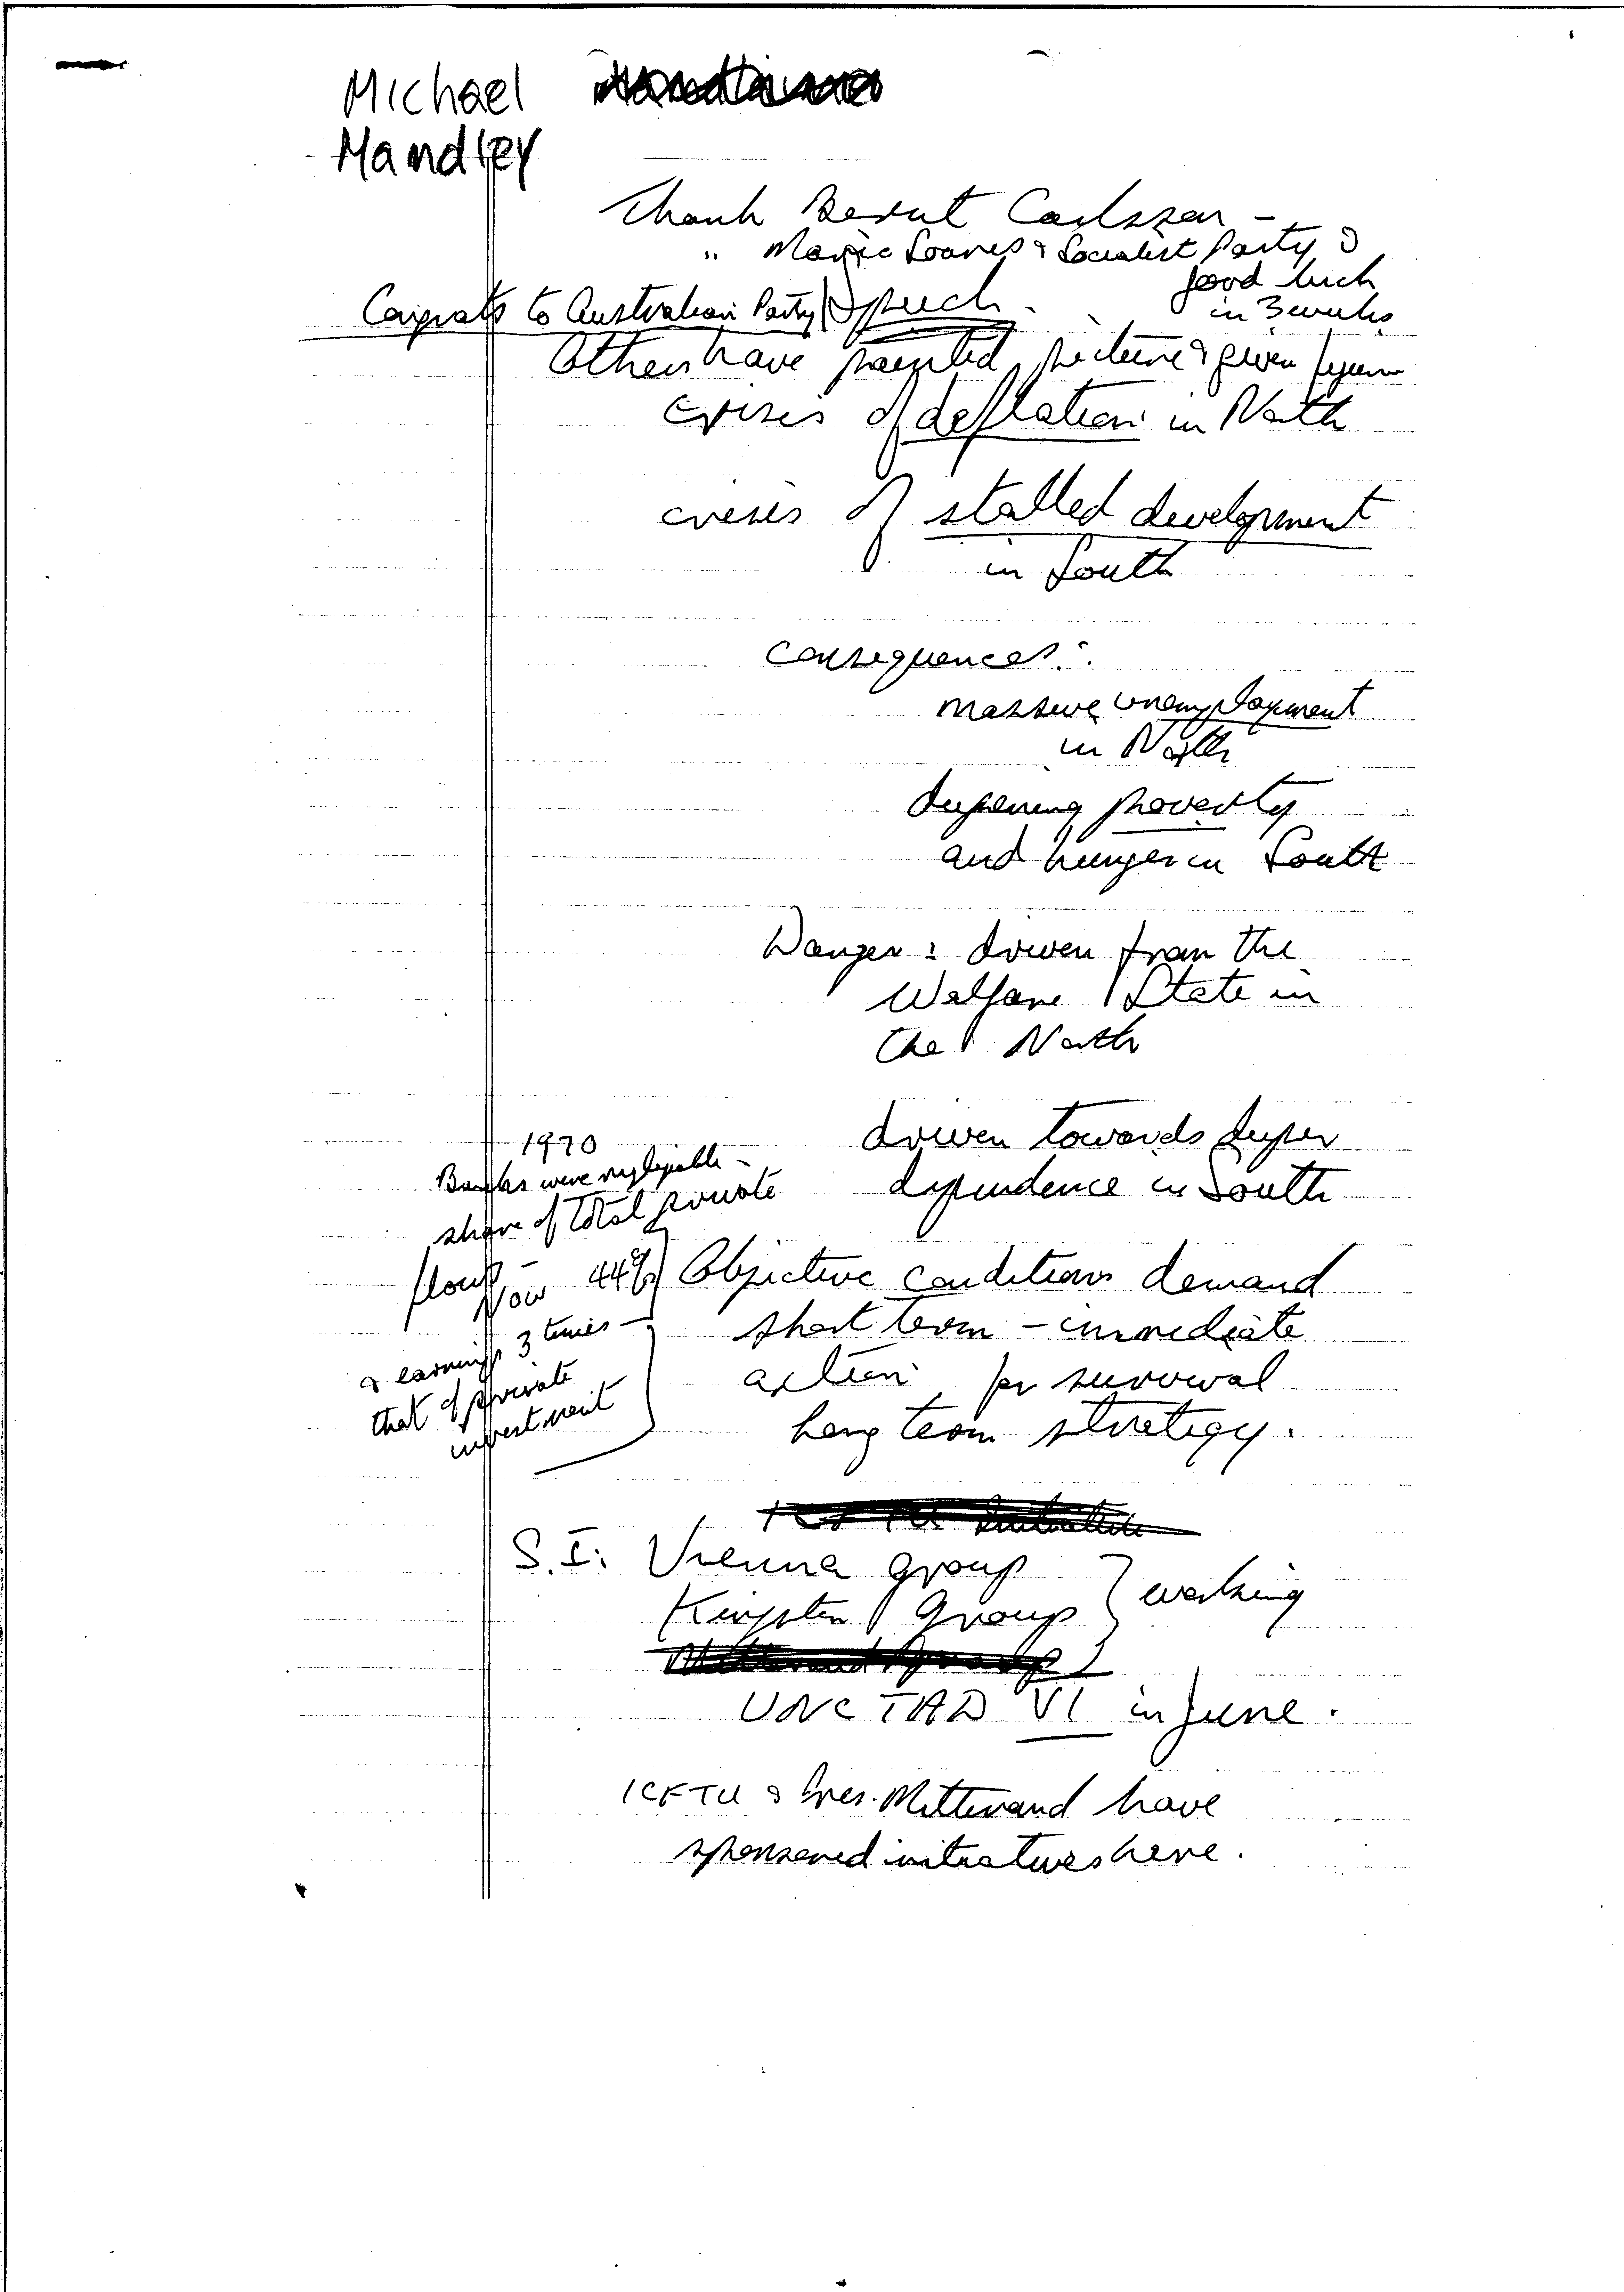 Michael
Mandley
Thank Bernt Carlsson -
" Mario Soares & Socialist Party &
good luck
in 3 weeks
Congrats to Australian Party Speech -
Others have painted picture & given figures
Crisis of deflation in North
crisis of stalled development
in South
Consequences:
massive unemployment
in North
deepening poverty
and hunger in South
Danger: driven from the
Welfare State in
the North
driven towards deeper
dependence in South
1970
Banks were negligible -
share of total private
flows -
Now 44%
& earnings 3 times -
that of private
investment
Objective conditions demand
short term - immediate
action for survival
long term strategy.
S.I. Vienna group
Kingston Group } working
UNCTAD VI in June.
ICFTU & Pres. Mitterand have
sponsored initiatives here.